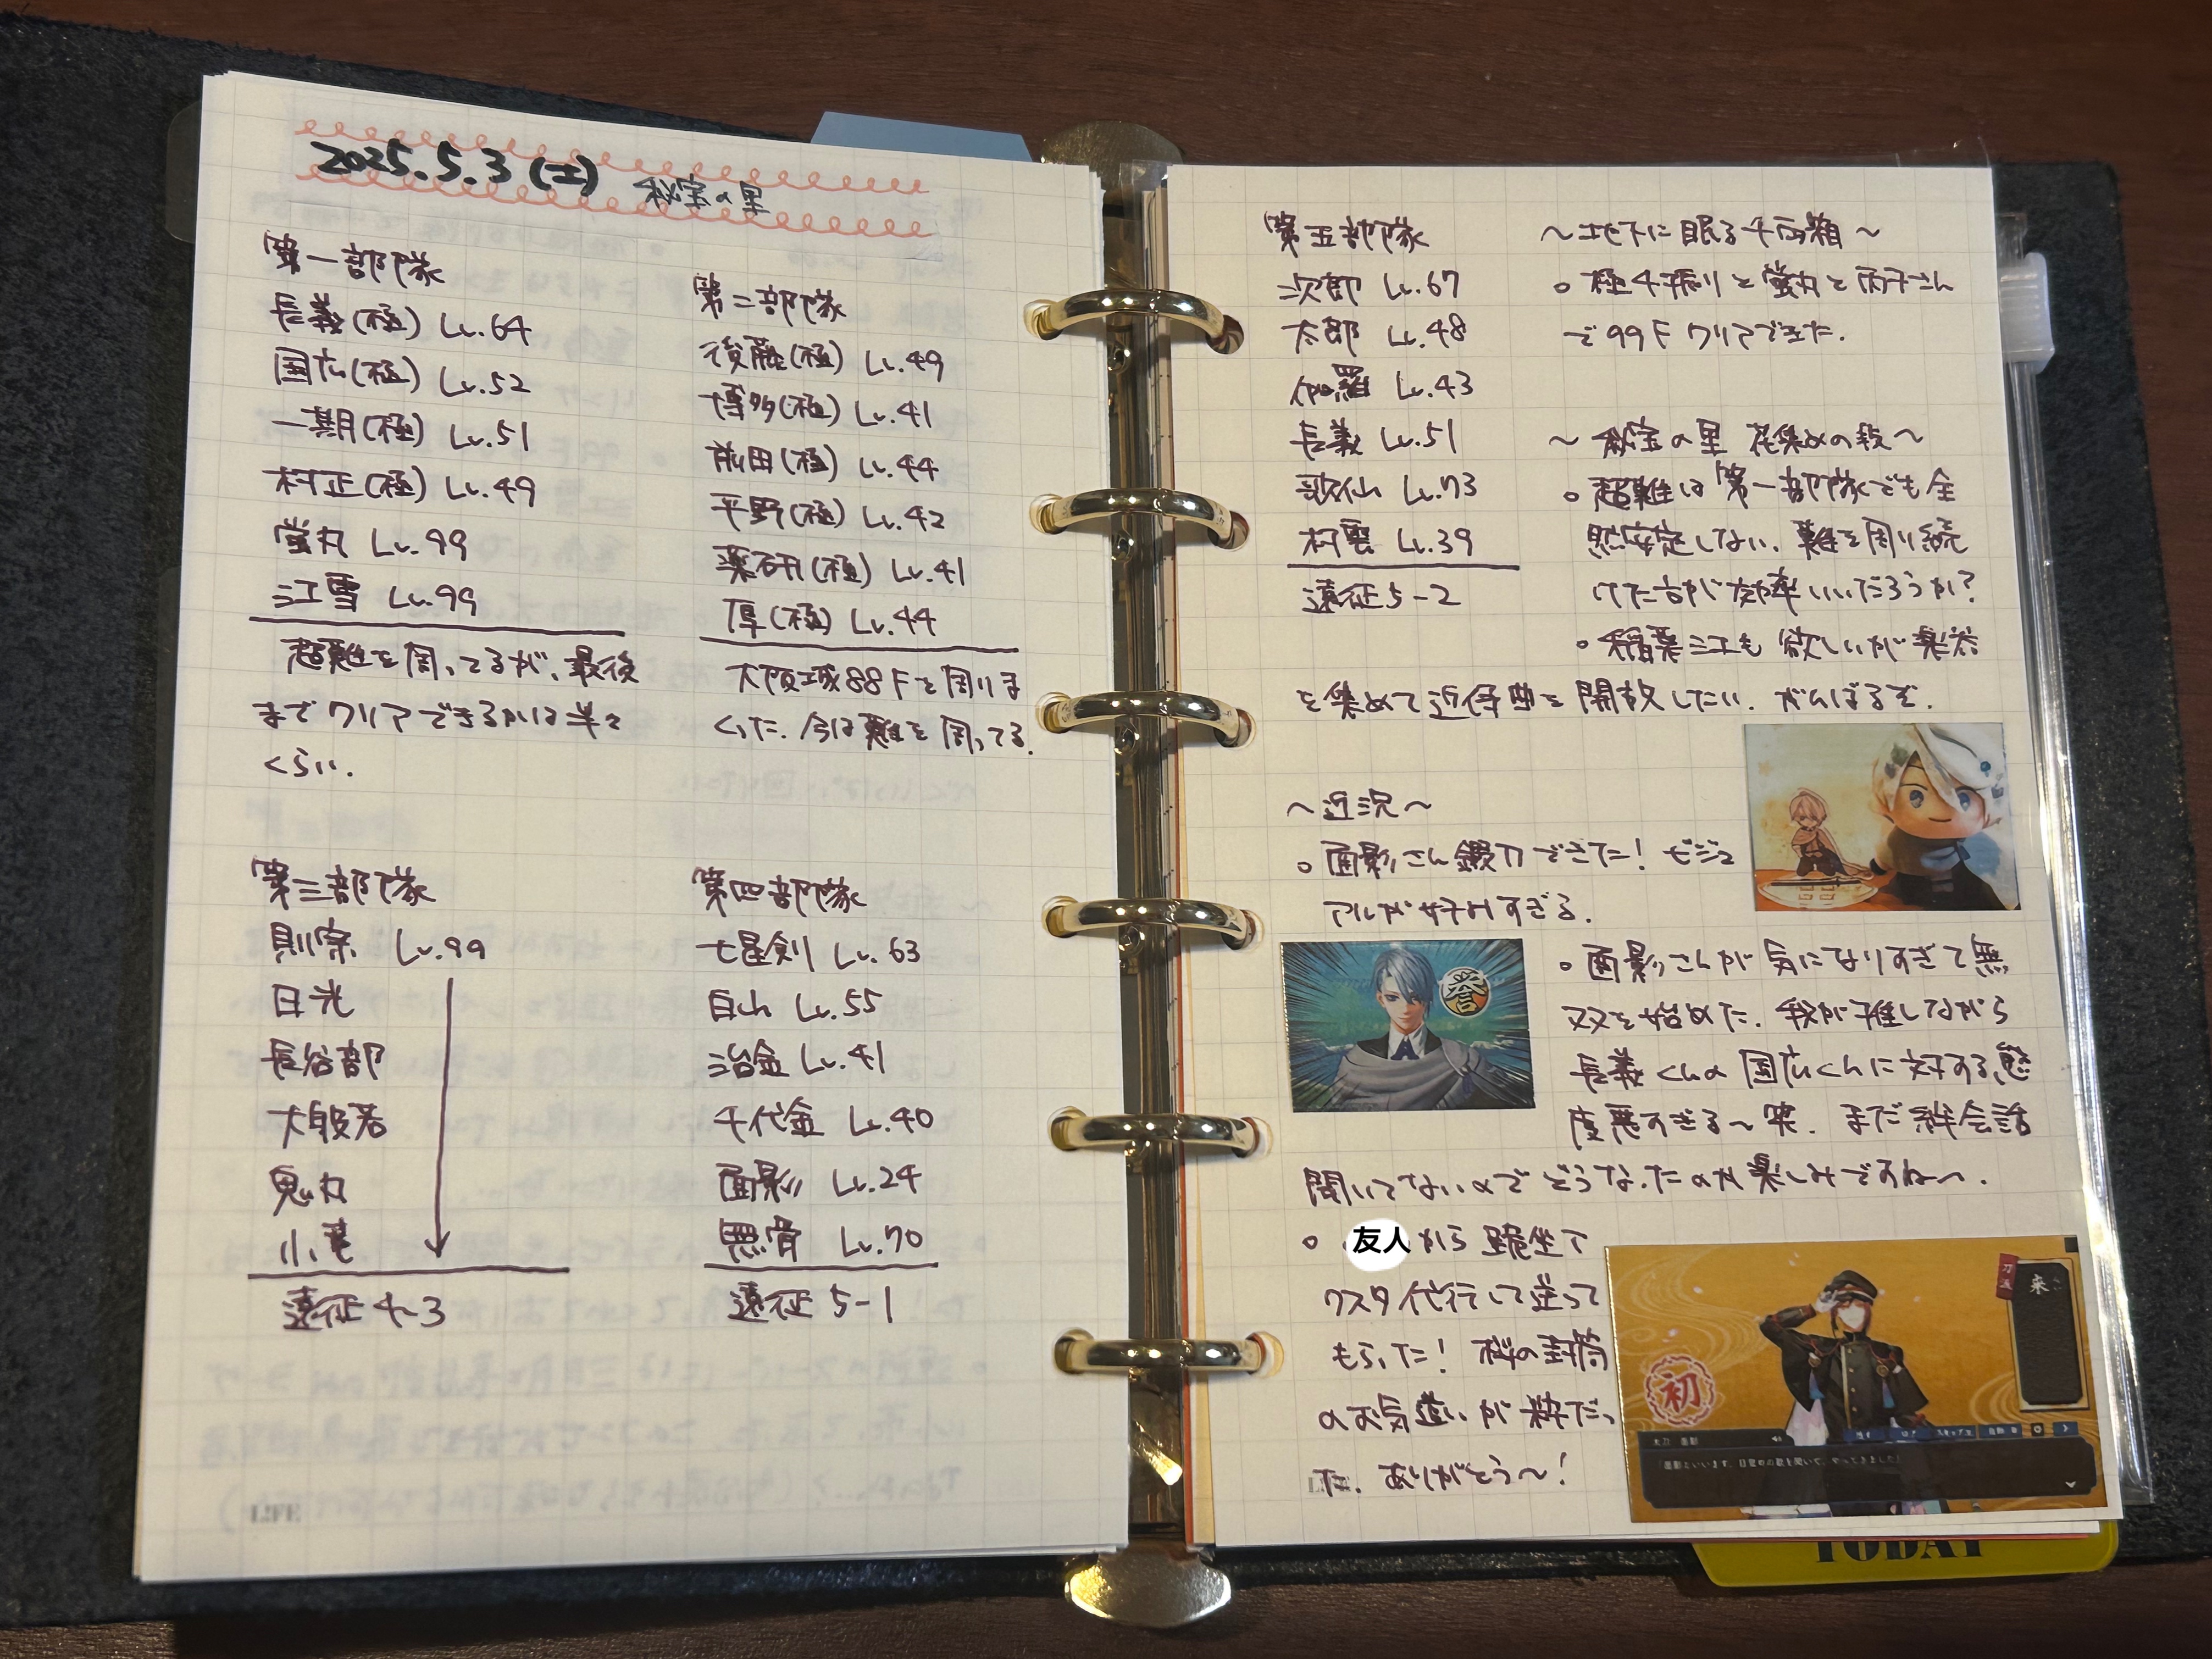 2025.5.3(土)
秘宝の里
第一部隊
長義(極) Lv.64
国広(極) Lv.52
一期(極) Lv.51
村正(極) Lv.49
蛍丸 Lv.99
江雪 Lv.99
超難を周ってるが、最後
までクリアできるかは半々
くらい.
第二部隊
後藤(極) Lv.49
博多(極) Lv.41
前田(極) Lv.44
平野(極) Lv.42
薬研(極) Lv.41
厚(極) Lv.44
大阪城88Fを周りま
くった. 今は難を周ってる.
第三部隊
則宗 Lv.99
日光
長谷部
大般若
鬼丸
小竜
遠征4-3
第四部隊
七星剣 Lv.63
白山 Lv.55
治金 Lv.41
千代金 Lv.40
面影 Lv.24
無骨 Lv.70
遠征5-1
LIFE
第五部隊
次郎 Lv.67
太郎 Lv.48
伽羅 Lv.43
長義 Lv.51
歌仙 Lv.73
村雲 Lv.39
遠征5-2
～地下に眠る千両箱～
○極4振りと蛍丸と丙子さん
で99Fクリアできた.
～秘宝の里 花集めの段～
○超難は第一部隊でも全
然安定しない. 難を周り続
けた方が効率いいだろうか?
○稲葉江も欲しいが楽器
を集めて近侍曲を開放したい. がんばるぞ.
～近況～
○面影さん鍛刀できた! ビジュ
アルが好みすぎる.
誉
○面影さんが気になりすぎて無
双を始めた. 我が推しながら
長義くんの国広くんに対する態
度悪すぎる～笑. まだ絆会話
聞いてないのでどうなったのか楽しみですね～.
○友人から跪坐
アクスタ代行して送って
もらった! 桜の封筒
のお気遣いが粋だっ
た. ありがとう～!
初
刀派
来
太刀 面影
「面影といいます。目覚めの歌を聞いて、やってきました」
TODAY